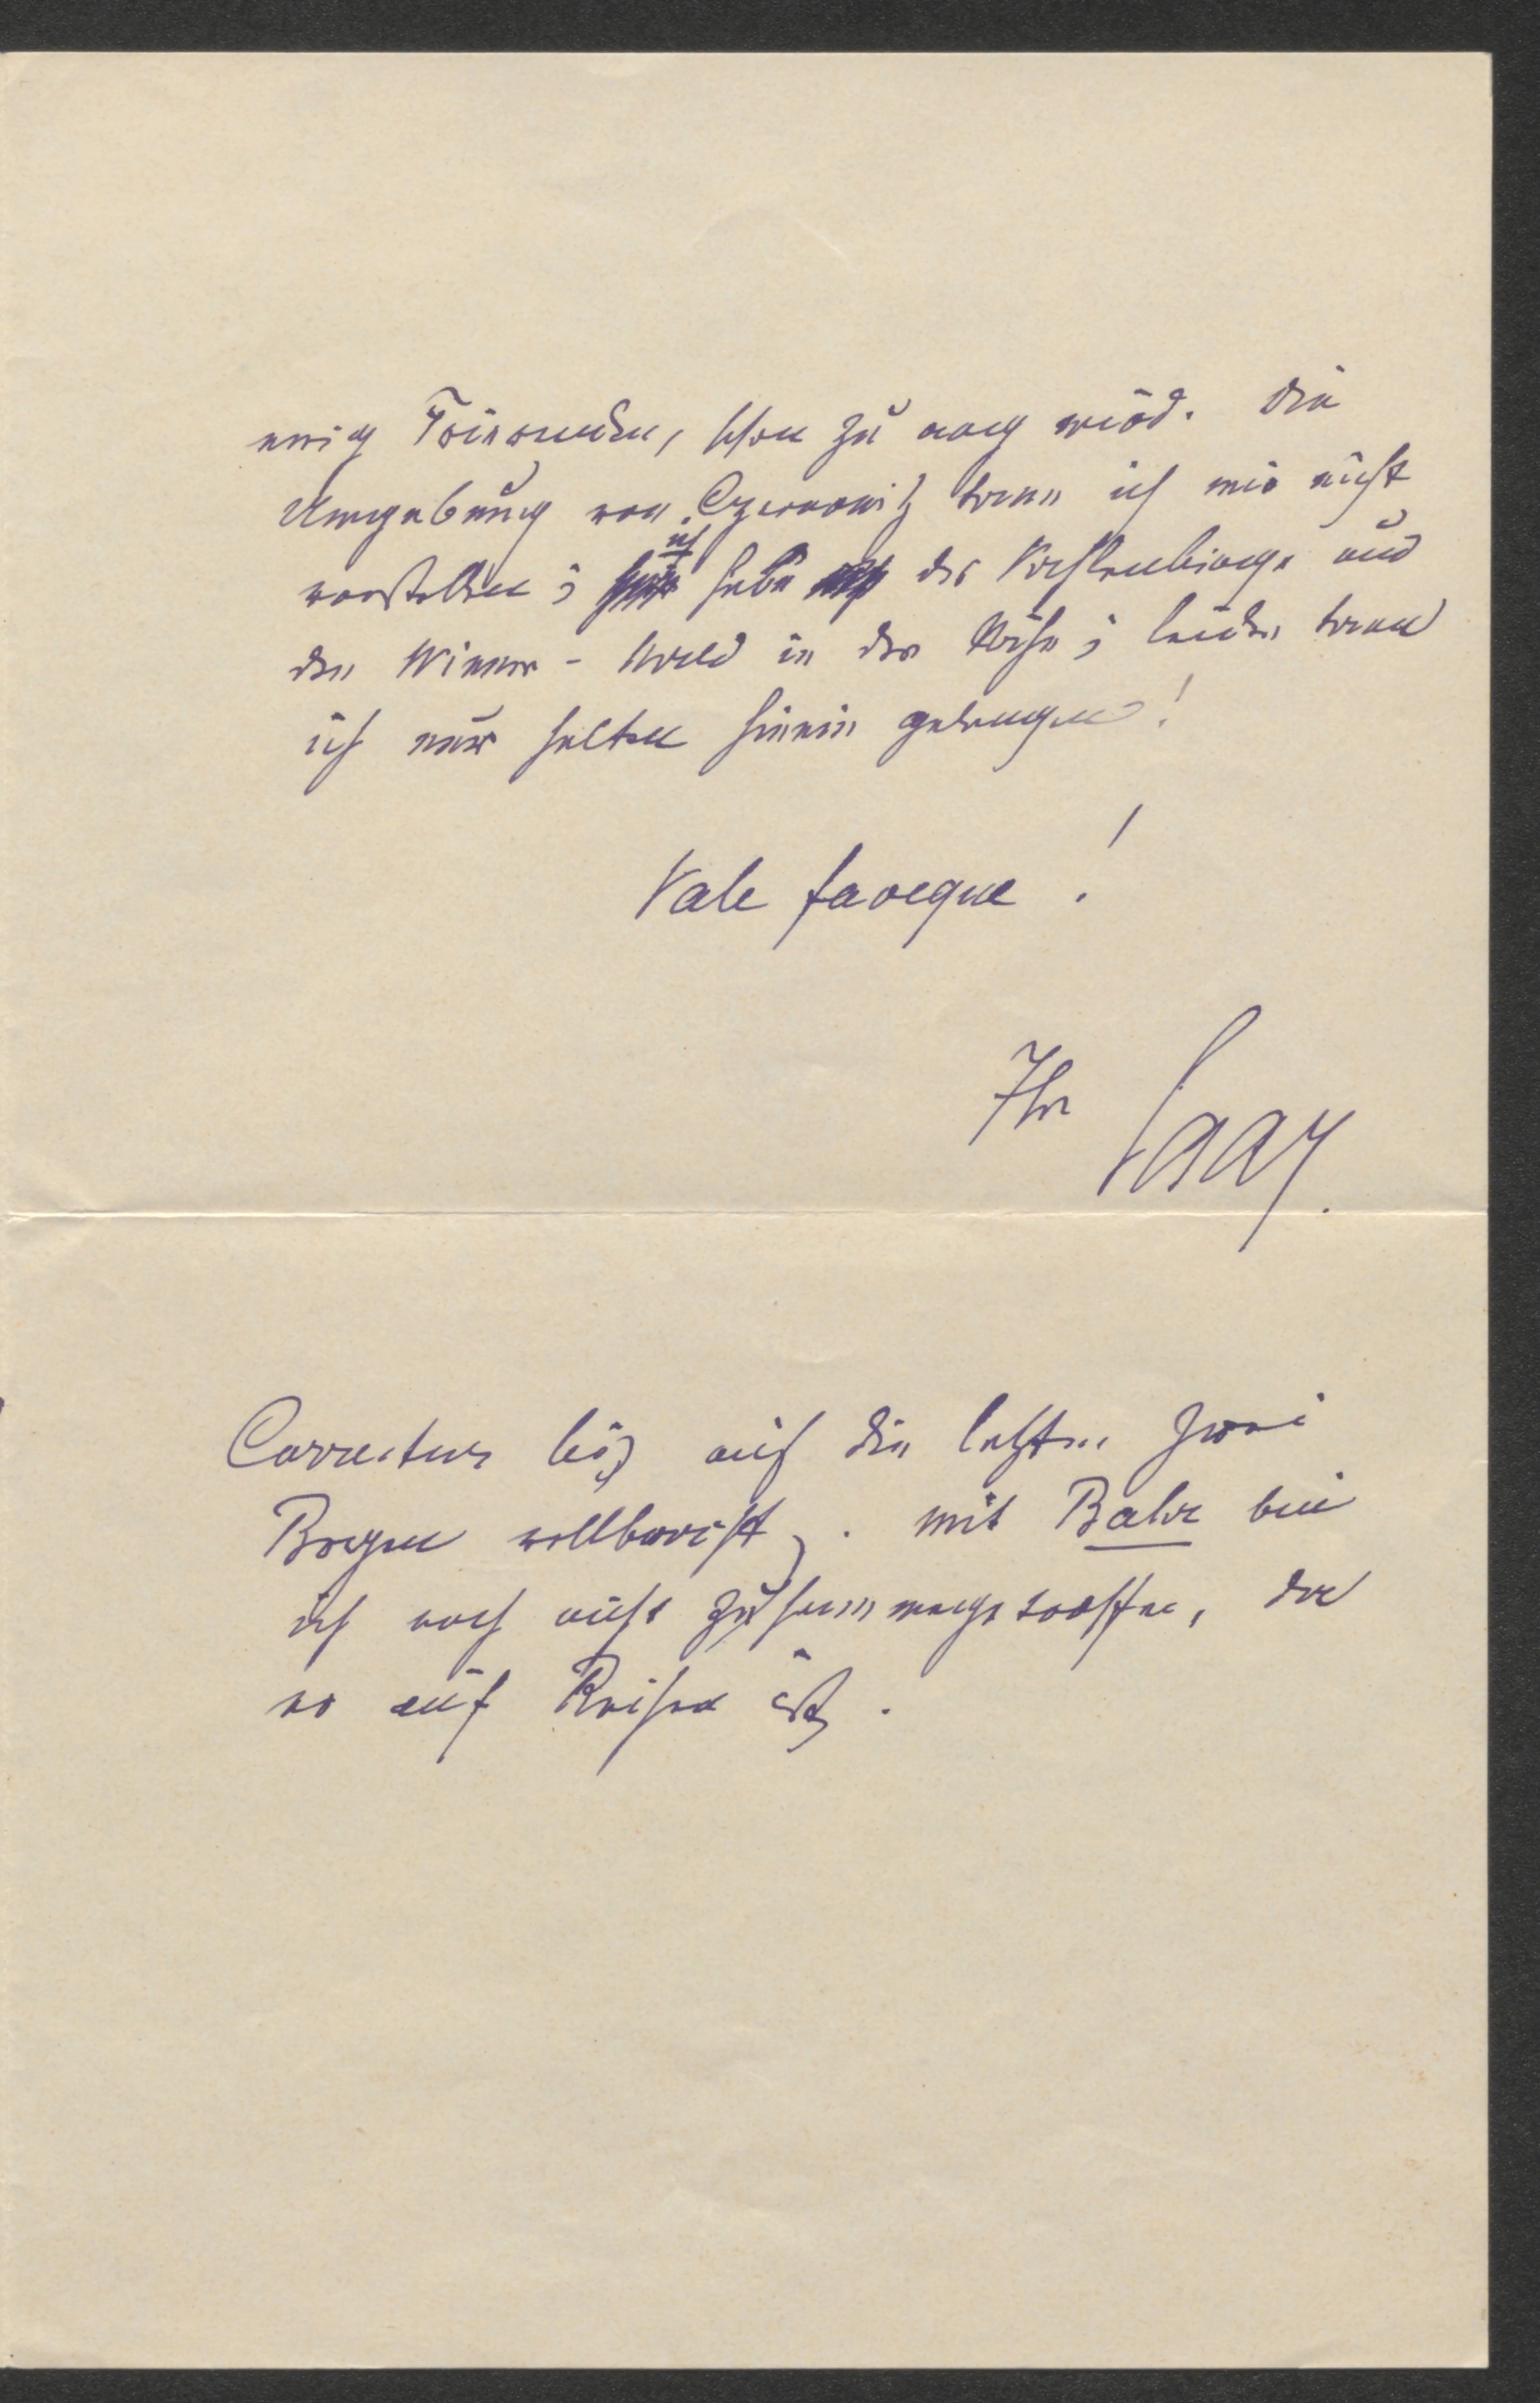 ewig Trauernden, schon zu arg wird. Die
Umgebung von Czernowitz kann ich mir nicht
vorstellen; ich habe das Kahlengebirge und
den Wiener-Wald in der Nähe; leider kann
ich nur selten hinein gelangen!
Vale faveque!
Ihr Saar.
Correctur bis auf die letzten zwei
Bogen vollbracht. Mit Bahr bin
ich noch nicht zusammengetroffen, da
er auf Reisen ist.